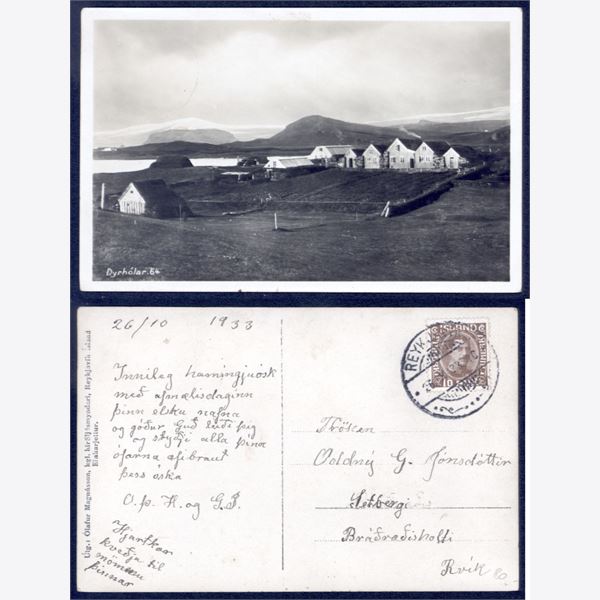 Dyrhólar. 64
26/10 1933
Innileg hamingjuósk
með afmælisdaginn
þinn elsku nafna
og góður Guð leiði þig
og styðji alla þína
ófarna æfibraut
þess óska
O. Þ. H. og G. J.
Hjartkær
kveðja til
mömmu
þinnar
Útg.: Ólafur Magnússon, kgl. hirðljósmyndari, Reykjavík Island
Einkarjettur.
ISLAND
REYKJ
10
Fröken
Oddný G. Jónsdóttir
Setbergi
Bráðræðisholti
Rvík
80